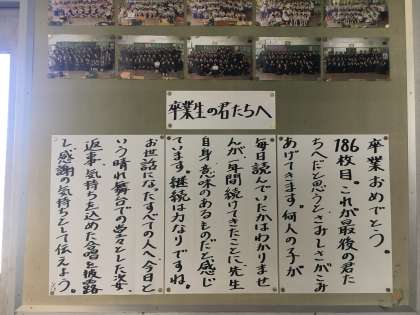 卒業生の君たちへ
卒業おめでとう。
186枚目。これが最後の君た
ちへだと思うとさみしさがこみ
あげてきます。何人の子が
毎日読んでいたかはわかりませ
んが、一年間続けてきたことに、先生
自身、意味のあるものだと感じ
ています。継続は力なりですね。
お世話になったすべての人へ、今日と
いう晴れ舞台での堂々とした姿、
返事、気持ちを込めた合唱を披露
し、感謝の気持ちとして伝えよう。